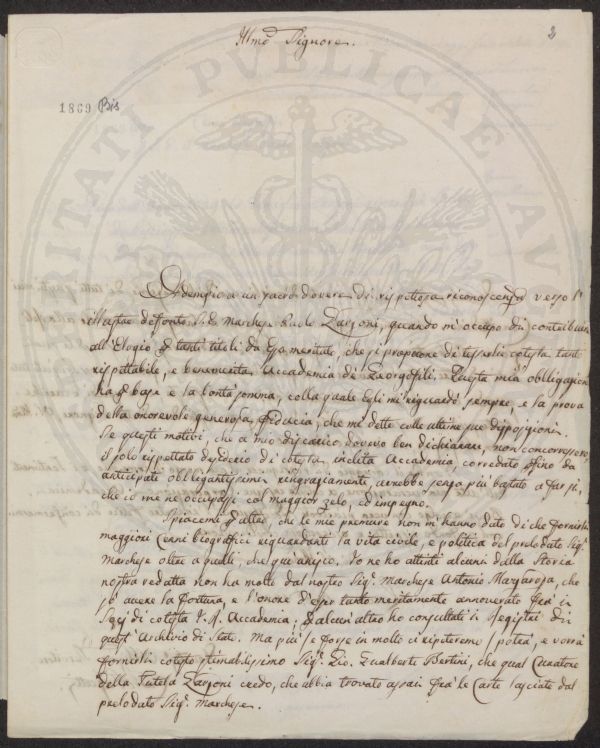 Illmo Signore.
2
1869 Bis
PVBLICAE
Adempio a un sacro dovere di rispettosa riconoscenza verso l'
illustre defonto S.E. Marchese Paolo Garzoni, quando mi occupo di contribuire
all'Elogio p tanti titoli da Esso meritato, che si propone di tesserli cotesta tanto
rispettabile, e benemerita Accademia dei Georgofili. Questa mia obbligazione
ha p base e la bontà somma, colla quale Egli mi riguardò sempre, e la prova
della onorevole generosa fiducia, che mi dette colle ultime sue disposizioni.
Se questi motivi, che a mio discarico dovevo ben dichiarare, non concorressero,
il solo rispettato desiderio di cotesta inclita Accademia, corredato sino da
anticipati obbligantissimi ringraziamenti, avrebbe senza più bastato a far sì,
che io me ne occupassi col maggior zelo, ed impegno.
Spiacemi p altro, che le mie premure non m'hanno dato di che fornirli
maggiori Cenni biografici riguardanti la vita civile, e politica del prelodato Sigr.
Marchese oltre a quelli, che qui unisco. Io ne ho attinti alcuni dalla Storia
nostra redatta non ha molto dal nostro Sigr. Marchese Antonio Mazzarosa, che
so avere la fortuna, e l'onore d'esser tanto meritamente annoverato fra i
Socj di cotesta I. R. Accademia; p alcun'altro ho consultati i Registri di
quest'Archivio di Stato. Ma più, e forse in molto ci ripeteremo, potrà, e vorrà
fornirli cotesto stimabilissimo Sigr. Gio. Gualberto Bertini, che qual Curatore
della Tutela Garzoni credo, che abbia trovato assai fra le Carte lasciate dal
prelodato Sigr. Marchese.